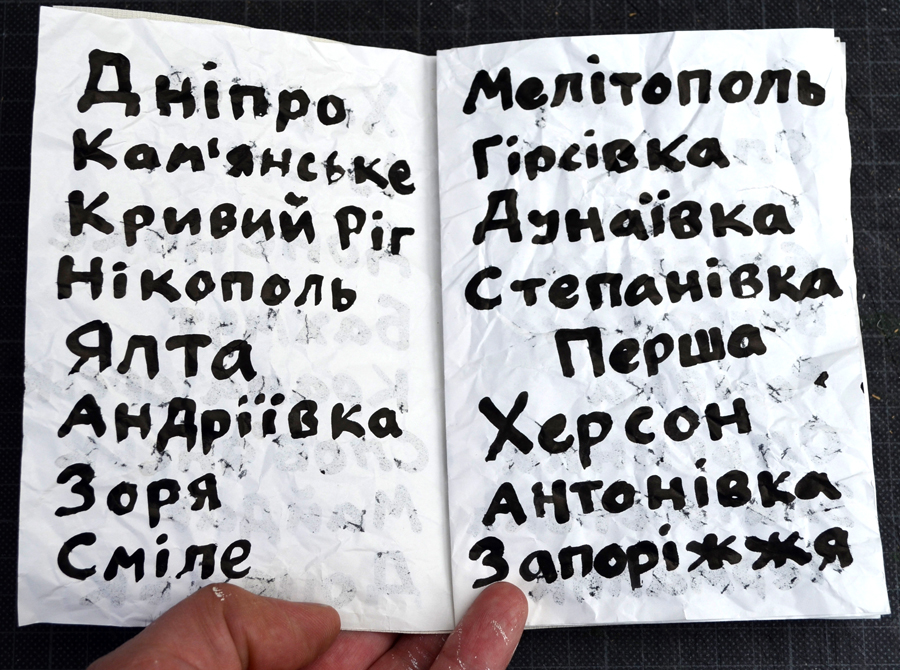 Дніпро
Кам'янське
Кривий Ріг
Нікополь
Ялта
Андріївка
Зоря
Сміле
Мелітополь
Гірсівка
Дунаївка
Степанівка
Перша
Херсон
Антонівка
Запоріжжя